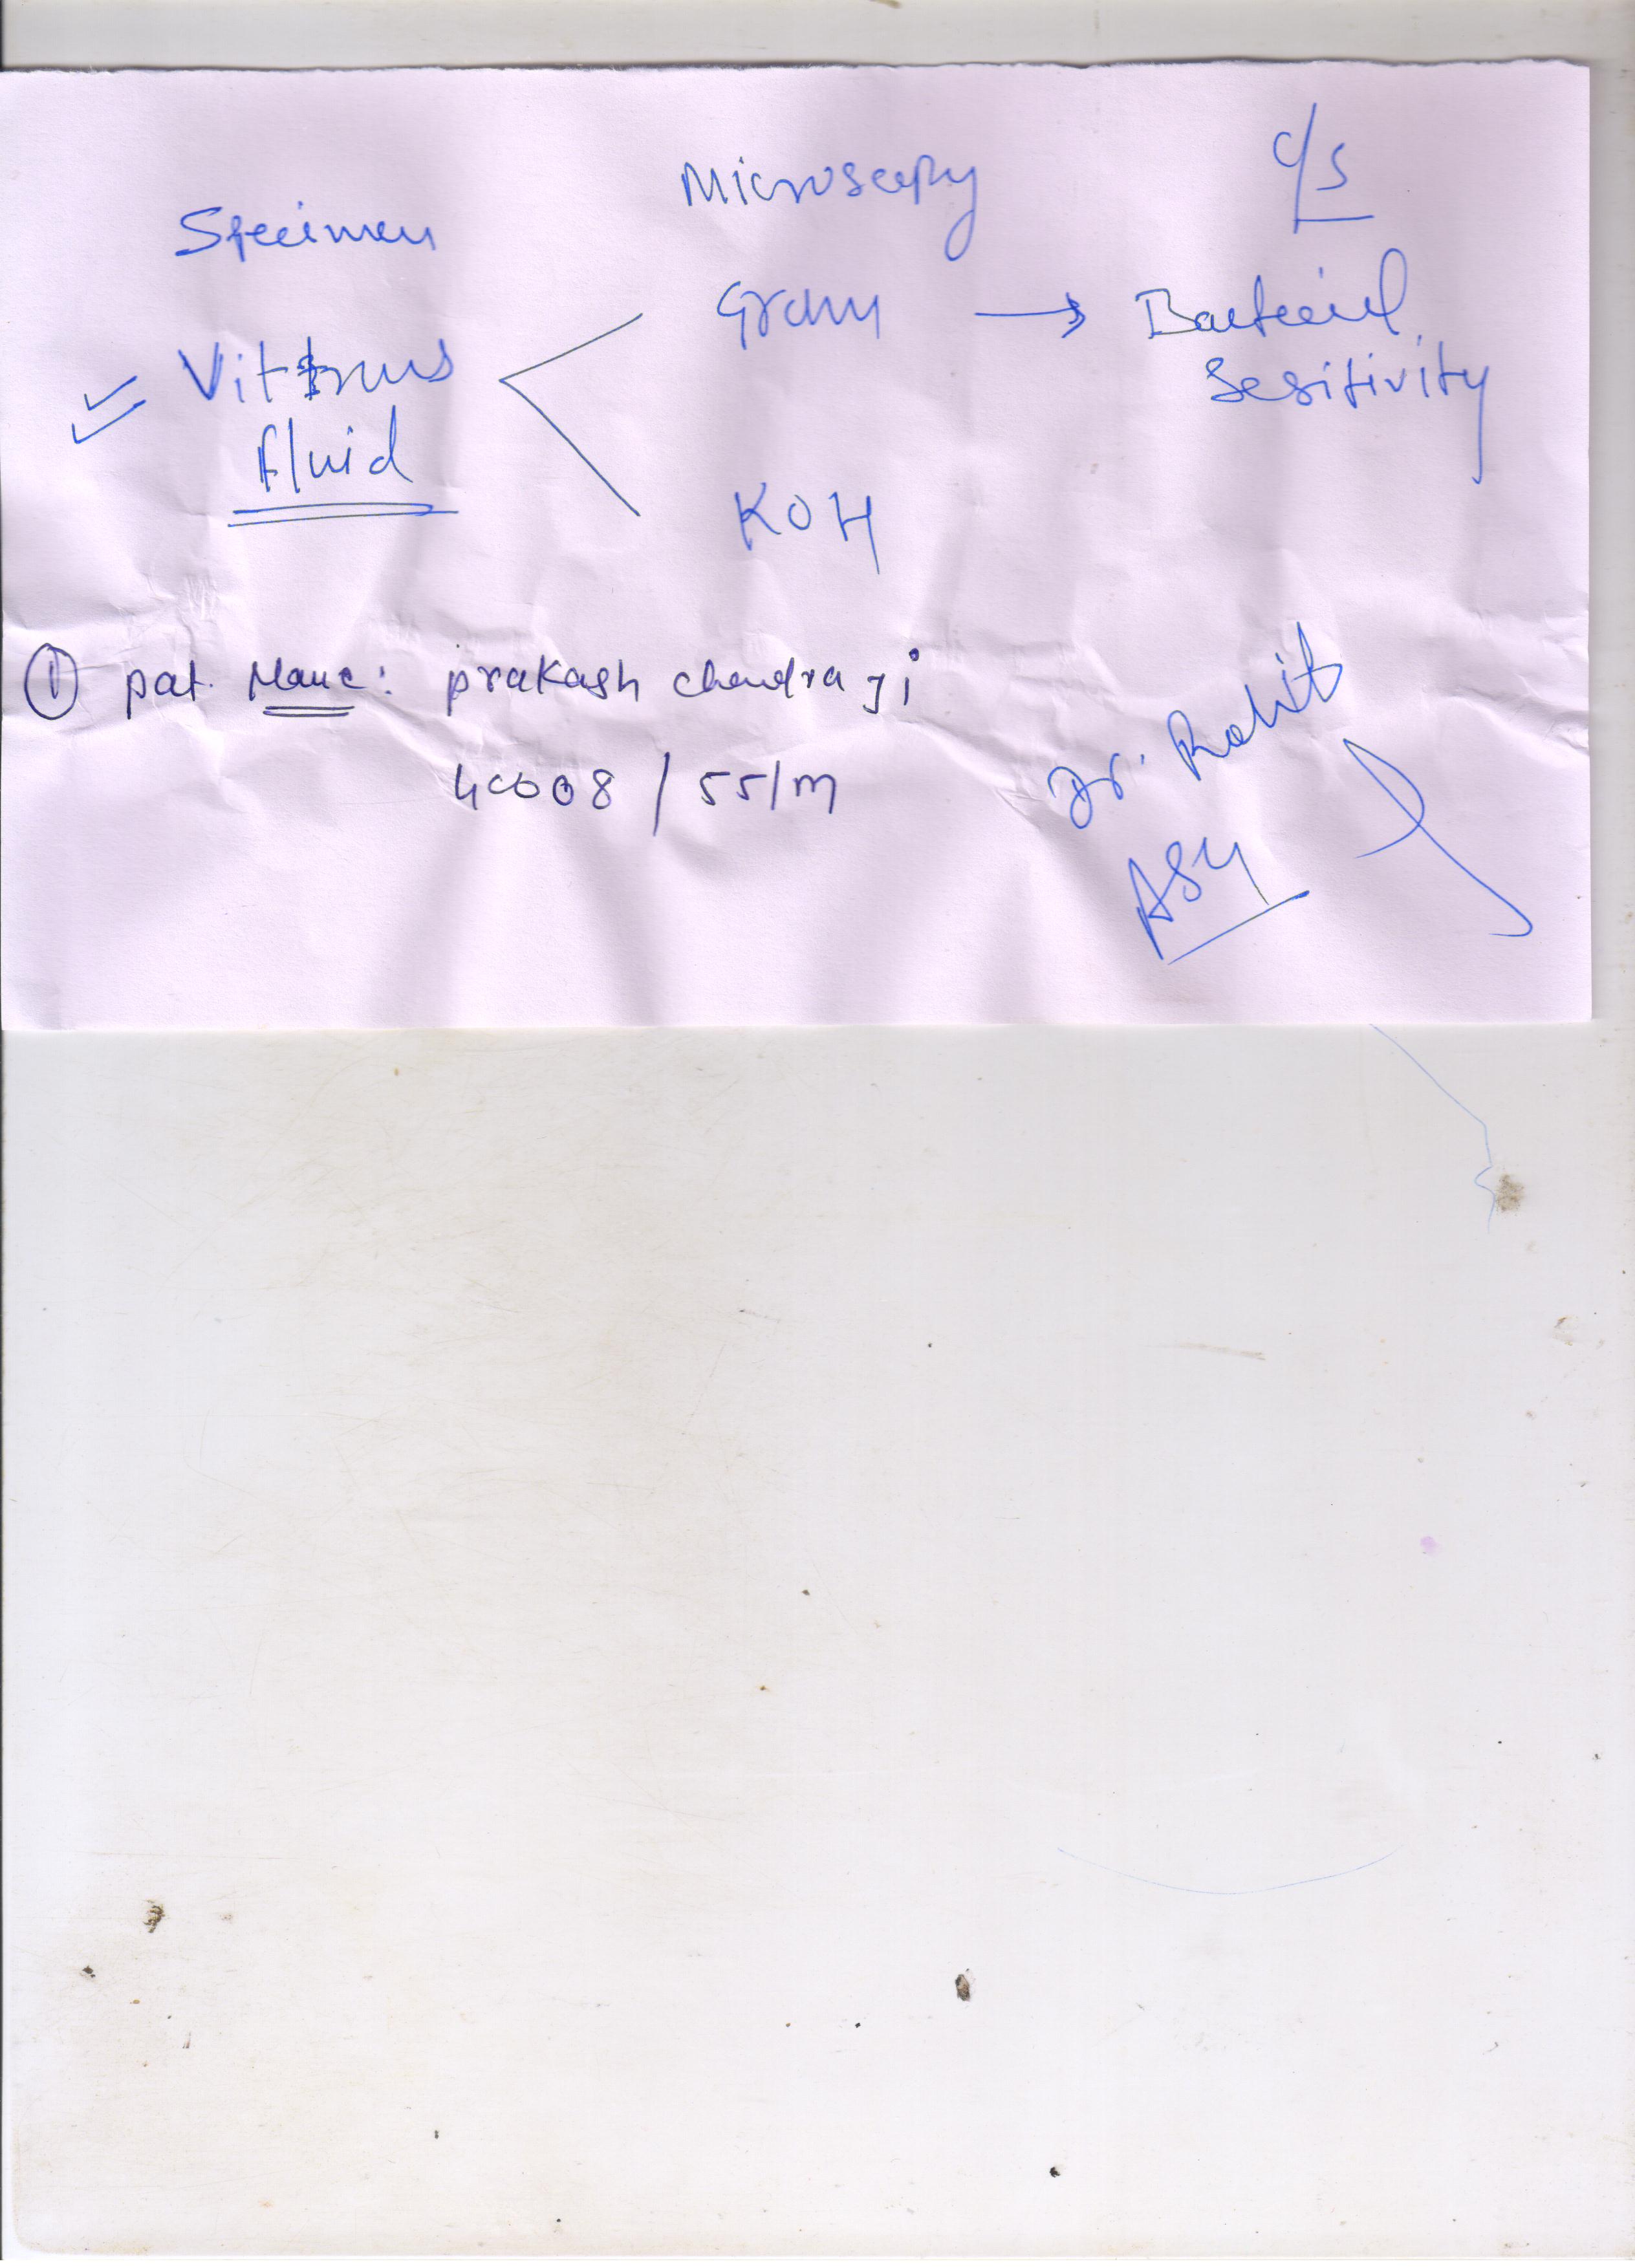 Specimen Microscopy C/S
Vittrus fluid
Gram → Bacterial Sesitivity
KOH
① pat. Name: prakash chandra ji
40008 / 55/m
Dr. Rohit